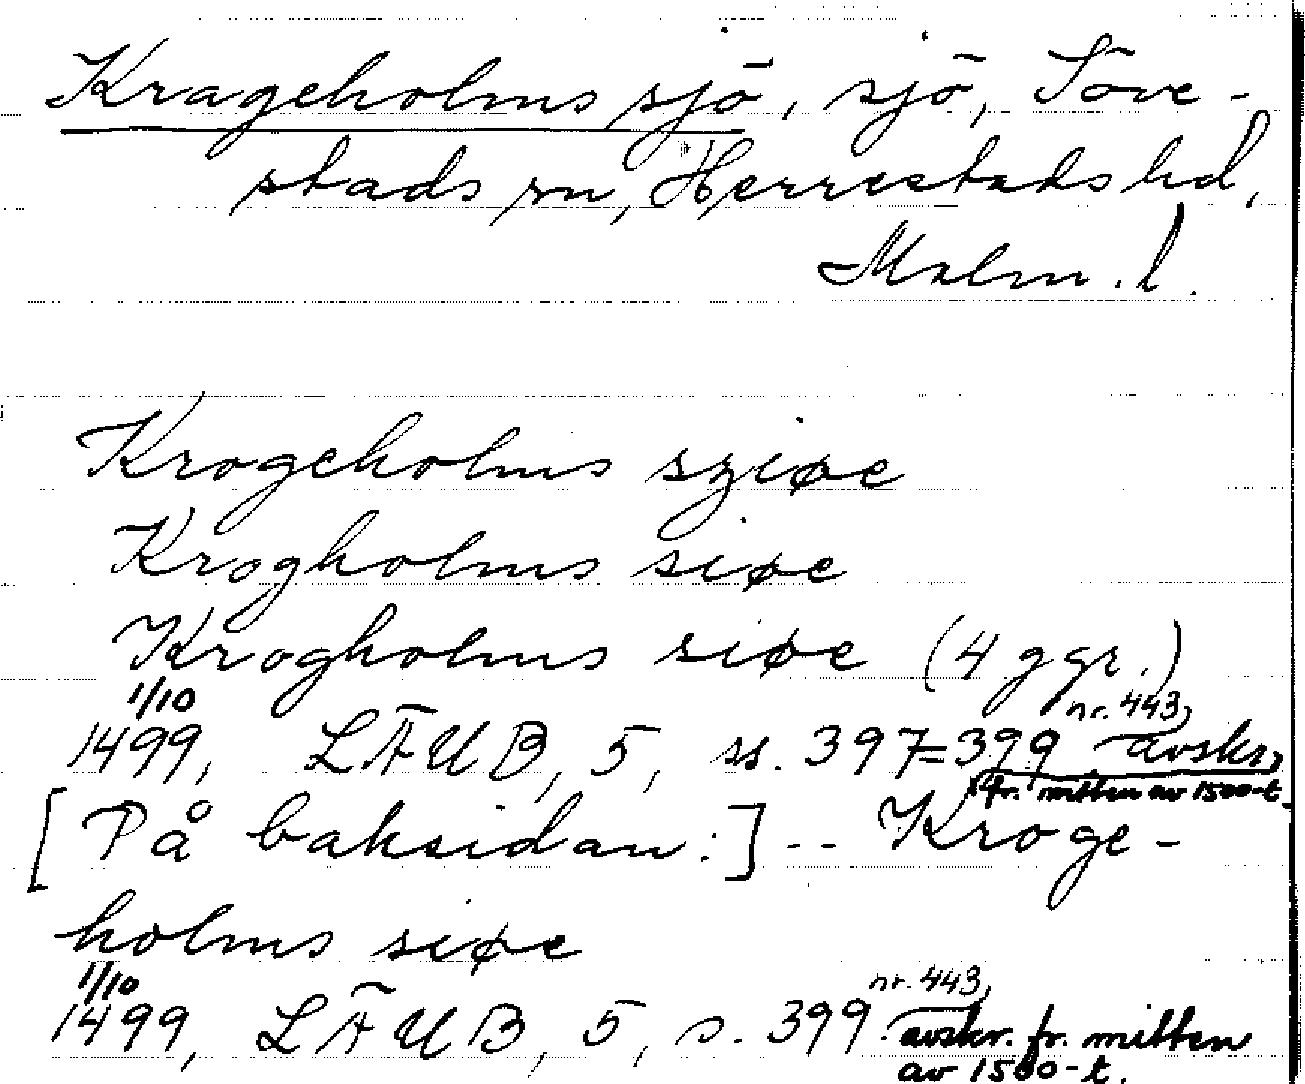 Krageholms sjö, sjö, Söve-
stads sn, Herrestads hd,
Malm. l.
Krogeholms sziøe
Krogholms siøe
Krogholms siøe (4 ggr.)
1/10 nr. 443,
1499, LÄUB, 5, ss. 397=399 avskr,
fr. mitten av 1500-t.
[På baksidan:] -- Kroge-
holms siøe
1/10 nr. 443,
1499, LÄUB, 5, s. 399. avskr. fr. mitten
av 1500-t.